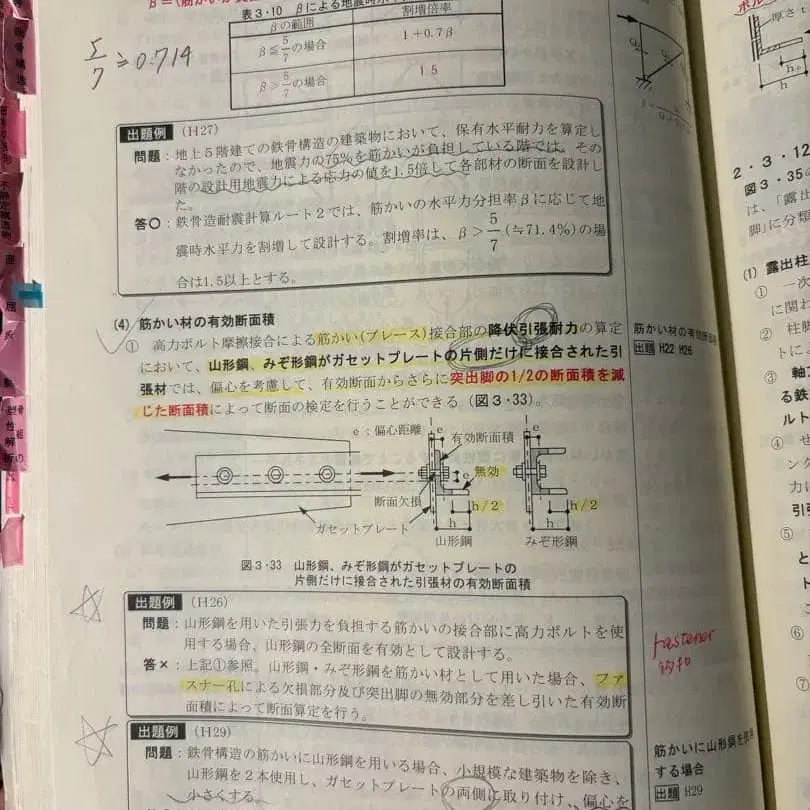 表3・10 βによる地震時水
βの範囲
割増倍率
β≦5/7の場合
1+0.7β
β>5/7の場合
1.5
5/7≒0.714
出題例 (H27)
問題：地上5階建ての鉄骨構造の建築物において、保有水平耐力を算定し
なかったので、地震力の75%を筋かいが負担している階では、その
階の設計用地震力による応力の値を1.5倍して各部材の断面を設計し
た。
答○：鉄骨造耐震計算ルート2では、筋かいの水平力分担率βに応じて地
震時水平力を割増して設計する。割増率は、β>5/7(≒71.4%)の場
合は1.5以上とする。
(4) 筋かい材の有効断面積
① 高力ボルト摩擦接合による筋かい(ブレース)接合部の降伏引張耐力の算定
において、山形鋼、みぞ形鋼がガセットプレートの片側だけに接合された引
張材では、偏心を考慮して、有効断面からさらに突出脚の1/2の断面積を減
じた断面積によって断面の検定を行うことができる(図3・33)。
筋かい材の有効断面
出題 H22 H26
e：偏心距離
e
e
有効断面積
無効
e
断面欠損
h/2
h/2
ガセットプレート
h
h
山形鋼
みぞ形鋼
図3・33 山形鋼、みぞ形鋼がガセットプレートの
片側だけに接合された引張材の有効断面積
出題例 (H26)
問題：山形鋼を用いた引張力を負担する筋かいの接合部に高力ボルトを使
用する場合、山形鋼の全断面を有効として設計する。
答×：上記①参照。山形鋼・みぞ形鋼を筋かい材として用いた場合、ファ
スナー孔による欠損部分及び突出脚の無効部分を差し引いた有効断
面積によって断面算定を行う。
fastener
出題例 (H29)
問題：鉄骨構造の筋かいに山形鋼を用いる場合、小規模な建築物を除き、
山形鋼を2本使用し、ガセットプレートの両側に取り付け、偏心を
小さくする。
筋かいに山形鋼を使用
する場合
出題 H29
厚さt
h
2・3・12
図3・35の
は、「露出
脚」に分類
(1) 露出柱
① 一次
に関わ
② 柱脚
トによ
③ 軸
る鉄
ルト
④ せ
ング
力に
引張
⑤
と
ト
⑥
⑦